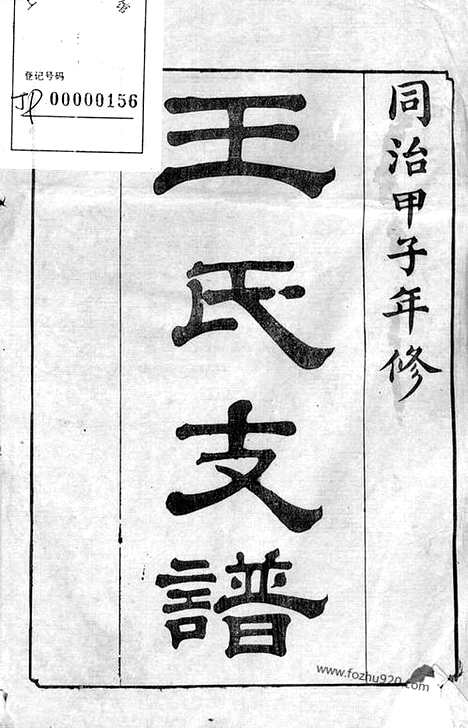 登记号码
JP 00000156
同治甲子年修
王氏支譜
www.fozhu920.com